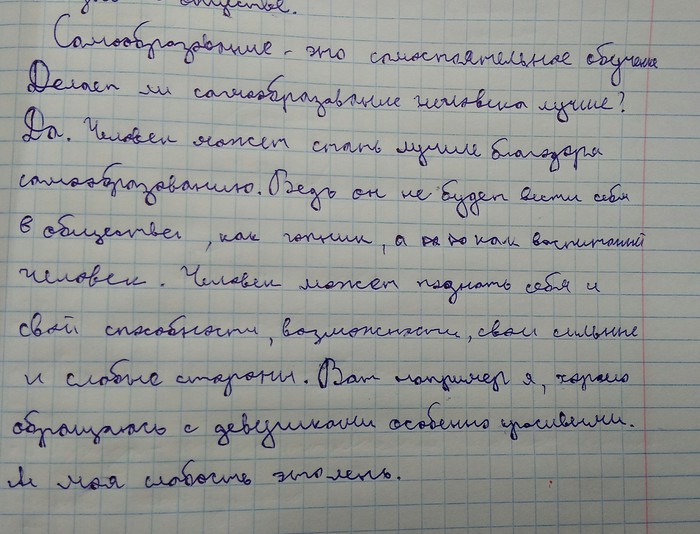 обществе.
Самообразование - это самостоятельное обучение
Делает ли самообразование человека лучше?
Да. Человек может стать лучше благодаря
самообразованию. Ведь он не будет вести себя
в обществе, как гопник, а как воспитанный
человек. Человек может познать себя и
свой способности, возможности, свои сильные
и слабые стороны. Вот например я, хорошо
обращаюсь с девушками особенно красивыми.
И моя слабость это лень.